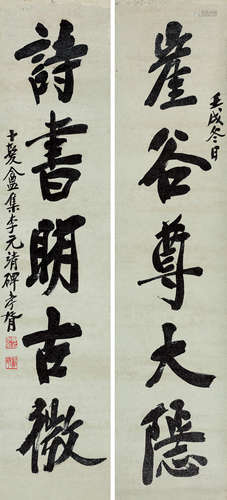 壬戌冬日
崖谷尊大隱
詩書明古微
十髮盦集李元靖碑孝胥